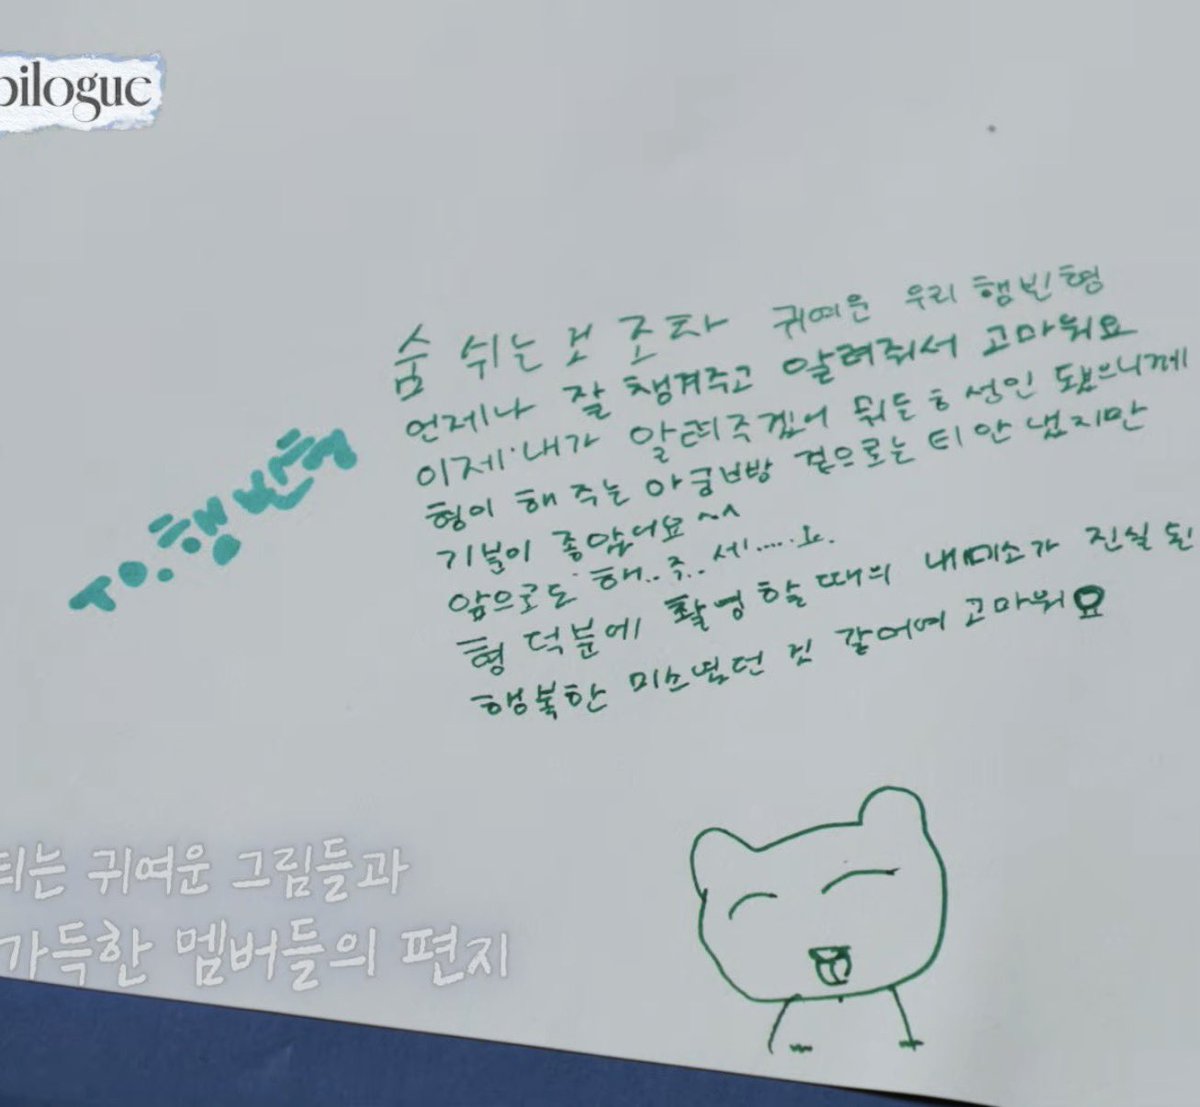 pilogue
숨 쉬는 것 조차 귀여운 우리 행빈형
언제나 잘 챙겨주고 알려줘서 고마워요
이제 내가 알려주겠어 뭐든 ㅎ 성인 됐으니께
형이 해 주는 아궁빵 겉으로는 티 안 냈지만
기분이 좋았더요 ^^
앞으로도 해..주..세.....요.
형 덕분에 촬영 할 때의 내 미소가 진실 된
행복한 미소였던 것 같어여 고마워요
TO.행빈형
티는 귀여운 그림들과
가득한 멤버들의 편지